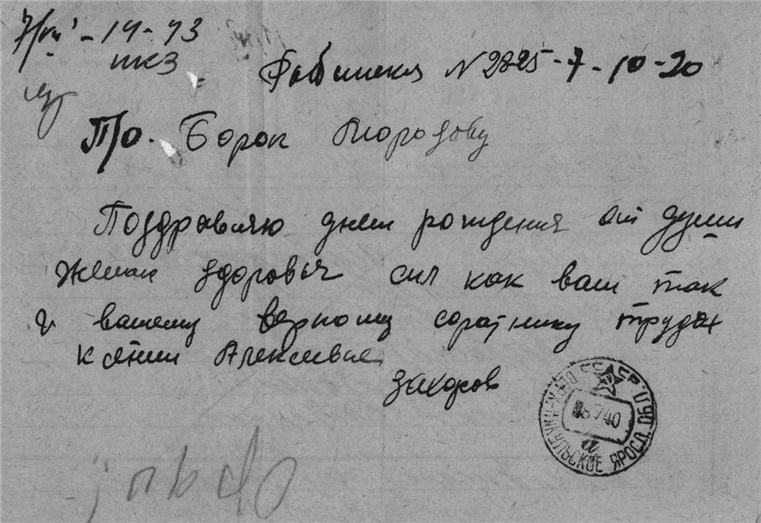 7/VII - 19-43
ткз
Рыбинска N 2825-7-10-20
П/о. Борок Морозову
Поздравляю днем рождения от души
желаю здоровья сил как вам так
и вашему верному соратнику трудах
Ксении Алексеевне
Захаров
8 7 40
ЯРОСЛ. ОБЛ.